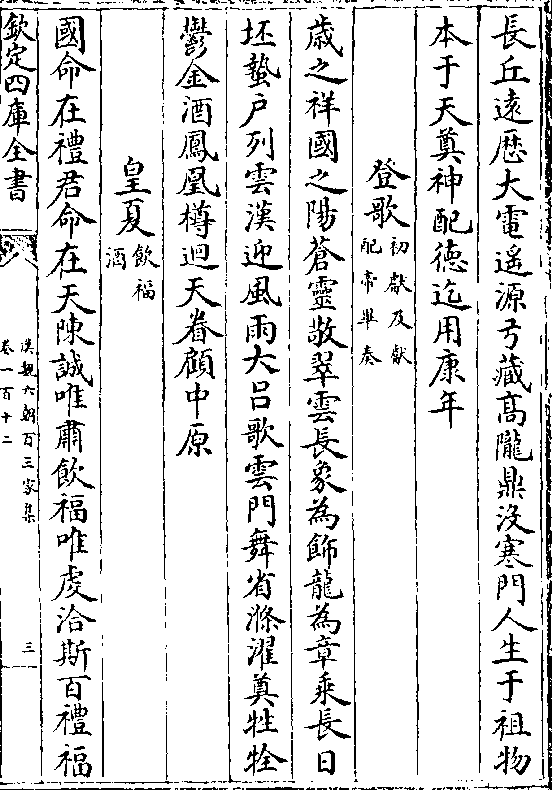 長丘遠歴大電遙源弓藏髙隴鼎没寒門人生于祖物
本于天奠神配徳迄用康年
登歌初獻及獻配帝畢奏
歲之祥國之陽蒼靈敬翠雲長象為飾龍為章乗長日
坯蟄户列雲漢迎風雨大吕歌雲門舞省滌濯奠牲牷
鬱金酒鳳凰樽迴天眷顧中原
皇夏飲福酒
國命在禮君命在天陳誠唯肅飲福唯虔洽斯百禮福
欽定四庫全書
漢魏六朝百三家集
卷一百十二
三